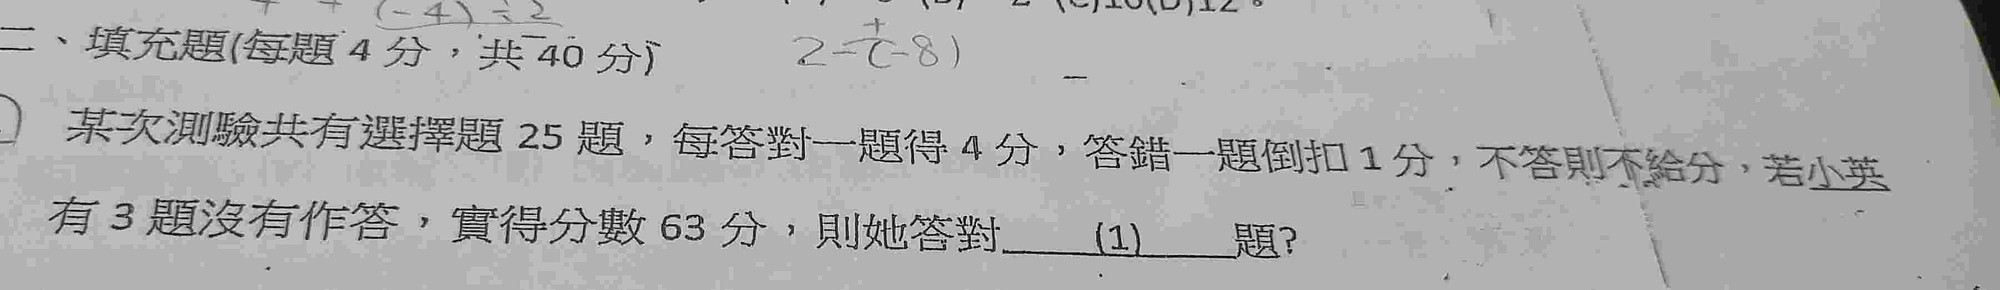 (-4)÷2
二、填充題(每題 4 分，共 40 分)
2-(-8)
某次測驗共有選擇題 25 題，每答對一題得 4 分，答錯一題倒扣 1 分，不答則不給分，若小英
有 3 題沒有作答，實得分數 63 分，則她答對____(1)____題?